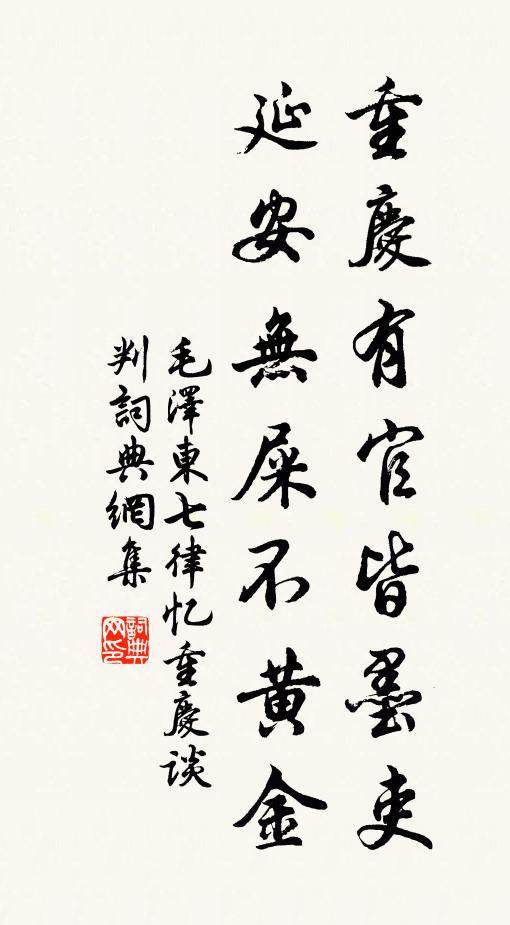 重慶有官皆墨吏
延安無屎不黄金
毛澤東七律忆重慶谈
判詞典網集
詞典网印